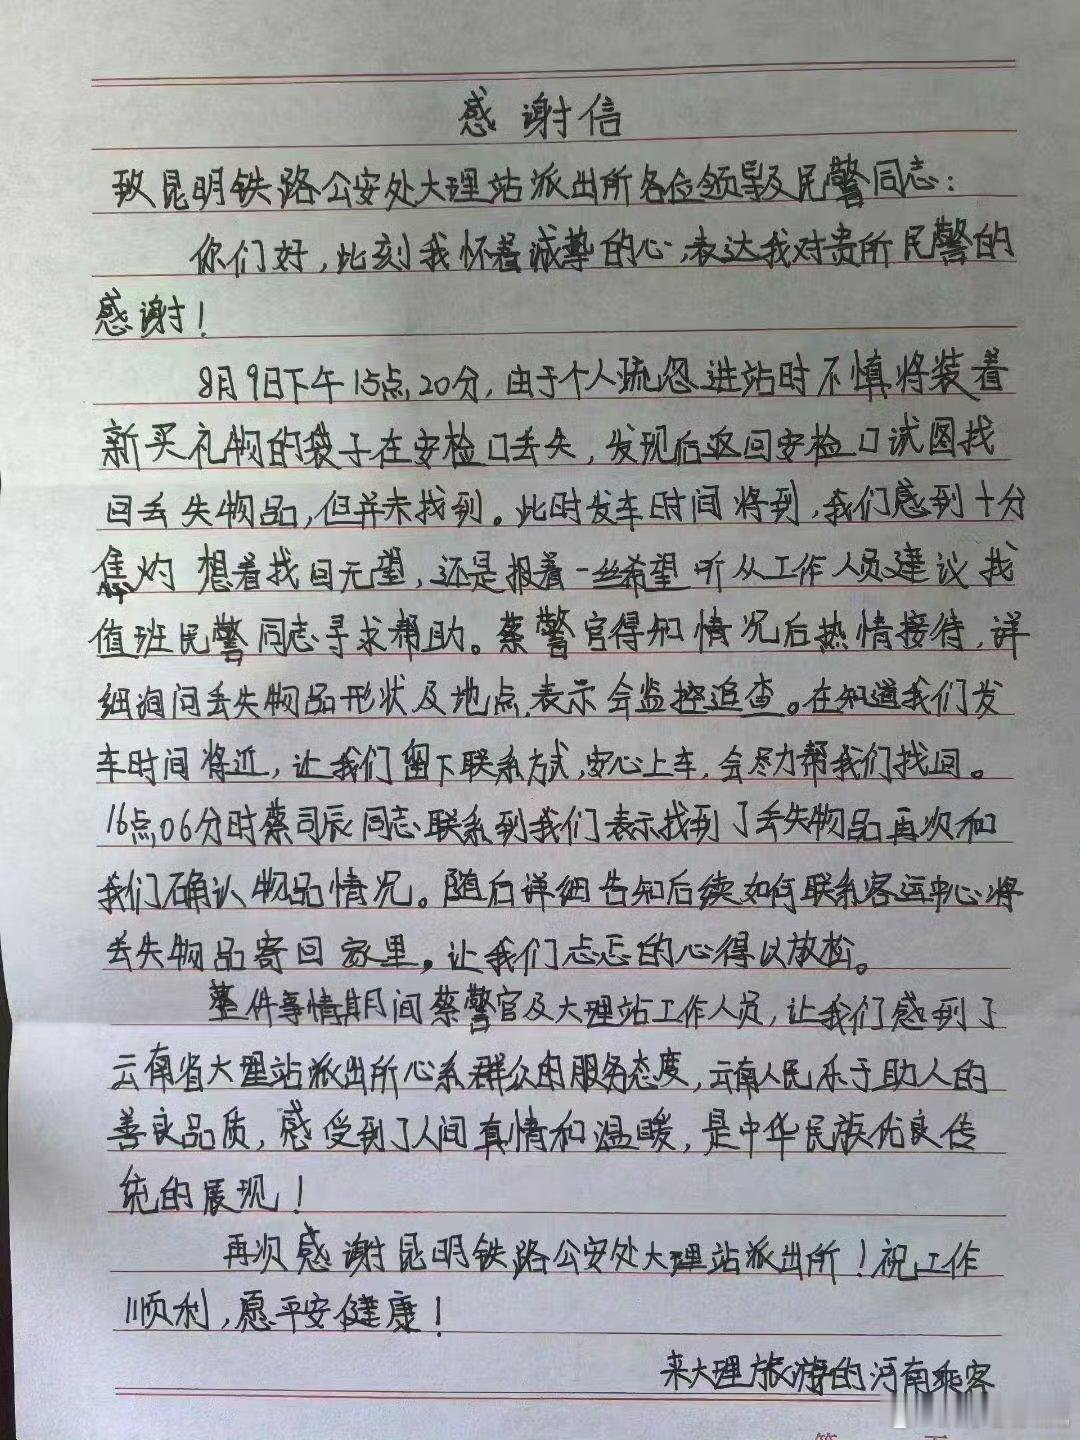 感谢信
致昆明铁路公安处大理站派出所各位领导及民警同志:
你们好,此刻我怀着诚挚的心,表达我对贵所民警的
感谢!
8月9日下午15点20分,由于个人疏忽进站时不慎将装着
新买礼物的袋子在安检口丢失,发现后返回安检口试图找
回丢失物品,但并未找到。此时发车时间将到,我们感到十分
焦灼 想着找回无望,还是报着一丝希望听从工作人员建议找
值班民警同志寻求帮助。蔡警官得知情况后热情接待,详
细询问丢失物品形状及地点,表示会监控追查。在知道我们发
车时间将近,让我们留下联系方式,安心上车,会尽力帮我们找回。
16点06分时蔡司辰同志联系到我们表示找到了丢失物品再次和
我们确认物品情况。随后详细告知后续如何联系客运中心将
丢失物品寄回家里,让我们忐忑的心得以放松。
整件事情期间蔡警官及大理站工作人员,让我们感到了
云南省大理站派出所心系群众的服务态度,云南人民乐于助人的
善良品质,感受到了人间真情和温暖,是中华民族优良传
统的展现!
再次感谢昆明铁路公安处大理站派出所!祝工作
顺利,愿平安健康!
来大理旅游的河南乘客